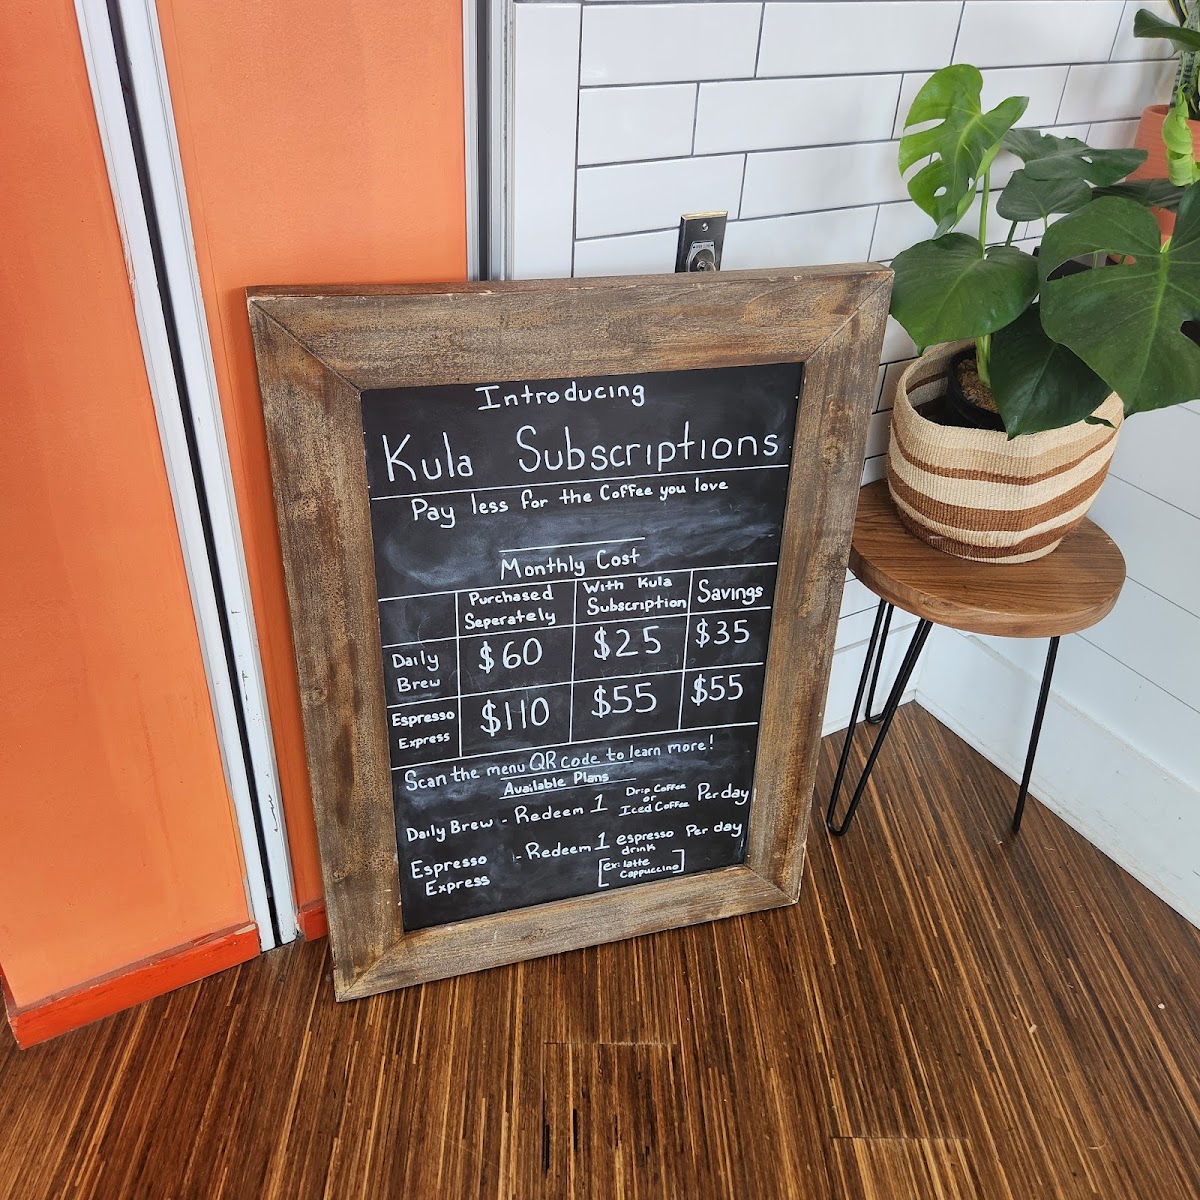 Introducing
Kula Subscriptions
Pay less for the Coffee you love
Monthly Cost
Purchased Seperately
With Kula Subscription
Savings
Daily Brew
$60
$25
$35
Espresso Express
$110
$55
$55
Scan the menu QR code to learn more!
Available Plans
Daily Brew - Redeem 1 Drip Coffee or Iced Coffee Per day
Espresso Express - Redeem 1 espresso drink Per day
[ex: latte Cappuccino]